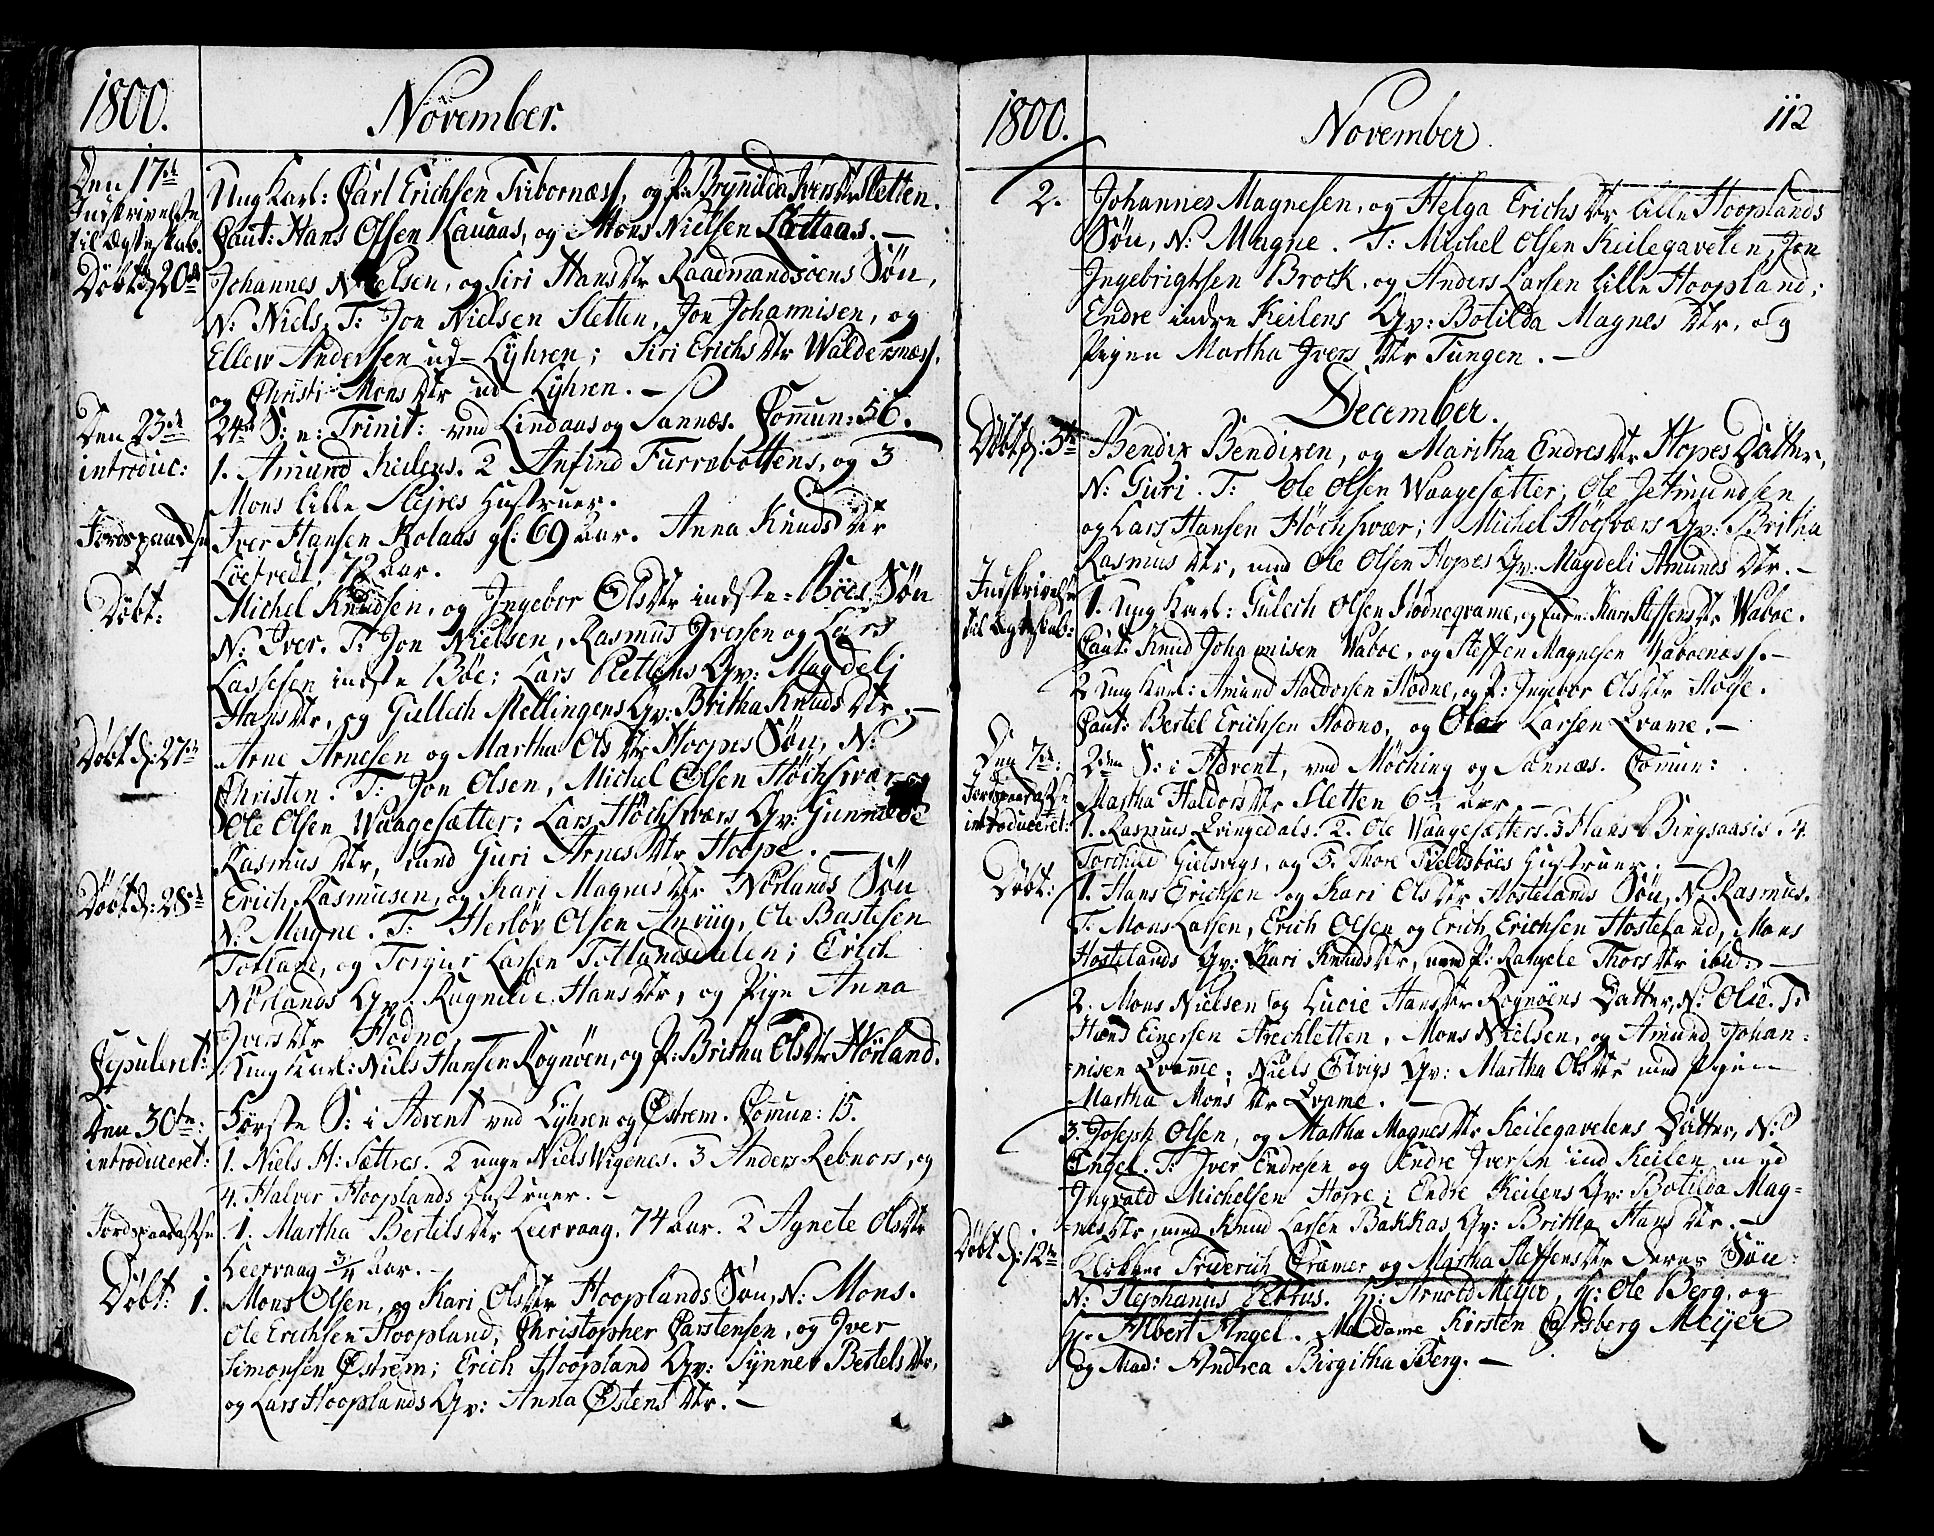 1800. November.
Den 17de Ung Karl: Carl Erichsen Fiboernæss, og P: Brynilda Ivers Dtr Sletten.
Indskrivelse til Ægteskab. Caut: Hans Olsen Kauaas, og Mons Nielsen Lottaas. –
Døbt d: 20de Johannes Nielsen, og Siri Hans Dtr Raadmandsøens Søn,
N: Niels. T: Jon Nielsen Sletten, Jon Johannisen, og
Ellew Andersen ud-Lyhren; Siri Erichs Dtr Waldersnæss,
og Christi Mons Dtr ud Lyhren. –
Den 23de 24de S: e: Trinit: ved Lindaas og Sannæs. Commun: 56.
introduc: 1. Amund Keilens. 2 Anfind Furrebottens, og 3
Mons lille Slejres Hustruer.
Jordspaakastelse Iver Hansen Kolaas gl: 69 aar. Anna Knuds Dtr
72 aar.
Døbt: Michel Knudsen, og Ingebor Ols Dtr indste-Böes Søn
N: Iver. T: Jon Nielsen, Rasmus Iversen og Lars
Lassesen indste Böe; Lars Gv: Magdeli
Hans Dtr, og Gullech Mellingens Gv: Britha Knuds Dtr. –
Døbt d: 27de Arne Arnesen og Martha Ols Dtr Hoopes Søn, N:
Christen. T: Jon Olsen, Michel Olsen Höchsvær og
Ole Olsen Waagesætter; Lars Höchsværs Gv: Gunnilde
Rasmus Dtr, med Guri Arnes Dtr Hoope. –
Døbt d: 28de Erich Rasmusen, og Kari Magnes Dtr Nörlands Søn
N: Magne. T: Herlöv Olsen Ole Bastesen
Totland, og Torgier Larsen Totlandsdalen; Erich
Nörlands Gv: Ragnilde Hans Dtr, og Pige Anna
Ivers Dtr Hodne. –
Copuleret: Ung Karl: Niels Hansen Rognöen, og P: Britha Ols Dtr Hörland.
Den 30te: Første S: i Advent ved Lyhren og Østrem. Commun: 15.
introduceret: 1. Niels H: Sættres. 2 unge Niels Wigenes. 3 Anders Rebnors, og
4. Halver Hooplands Hustruer. –
Jordspaakastelse 1. Martha Bertels Dtr Leervaag, 74 aar. 2 Agnete Ols Dtr
Leervaag 3/4 aar. –
Døbt: 1. Mons Olsen, og Kari Ols Dtr Hooplands Søn, N: Mons.
Ole Erichsen Hoopland, Christopher Carstensen, og Iver
Simonsen Østrem; Erich Hoopland Gv: Synnev Bertels Dtr,
og Lars Hooplands Gv: Anna Østens Dtr. –
1800. November. 112
2. Johannes Magnesen, og Helga Erichs Dtr lille Hooplands
Søn, N: Magne. T: Michel Olsen Keilegavelen, Jon
Ingebrigtsen Brock, og Anders Larsen lille Hoopland;
Endre indre Keilens Gv: Botilda Magnes Dtr, og
Pigen Martha Ivers Dtr Tungen. –
December.
Døbt d: 5te Bendix Bendixen, og Maritha Endres Dtr Hopes Datter,
N: Guri. T: Ole Olsen Waagesætter, Ole Jetmundsen
og Lars Hansen Höchsvær; Michel Högsværs Gv: Britha
Rasmus Dtr, med Ole Olsen Hopes Gv: Magdeli Amunds Dtr. –
Indskrivelse til Ægteskab: 1. Ung Karl: Gulech Olsen Hodneqvame, og Enke: Kari Steffens Dtr Waboe.
Caut: Knud Johannisen Waboe, og Steffen Magnesen Waboenæss. –
2 Ung Karl: Amund Haldorsen Hodne, og P: Ingebor Ols Dtr
Caut: Bertel Erichsen Hodne, og Olav Larsen Qvame. –
Den 7de: 2den S: i Advent, ved Möching og Sannæs. Commun:
Jordspaakastelse Martha Haldors Dtr Sletten 6 1/2 aar. –
introduceret: 1. Rasmus Qvingedals. 2. Ole Waagesætters. 3 Hans 4
Torchild Gielsvigs, og 5. Thore Fieldsböes Hustruer. –
Døbt: 1. Hans Erichsen og Kari Ols Dtr Hostelands Søn, N: Rasmus.
T: Mons Lassen, Erich Olsen og Erich Erichsen Hosteland, Mons
Hostelands Gv: Kari Knuds Dtr, med P: Ragnele Thors Dtr ibid: –
2. Mons Nielsen og Lucie Hans Dtr Rognöens Datter, N: Olse. T:
Hans Einersen Mons Nielsen, og Amund Johan-
nisen Qvamme; Niels Elvigs Gv: Martha Ols Dtr med Pigen
Martha Mons Dtr Qvame. –
3. Joseph Olsen, og Martha Magnes Dtr Keilegavelens Datter, N:
Engel. T: Iver Endresen og Endre Iversen ind Keilen med
Ingvald Michelsen Hopre; Endre Keilens Gv: Botilda Mag-
nes Dtr, med Knud Larsen Bakkas Gv: Britha Hans Dtr. –
Døbt d: 12te Klokker Friderich Cramer og Martha Steffens Dtr deres Søn:
N: Stephanus Petrus. Hr: Arnold Meyer, Hr: Ole Berg, og
Hr: Albert Angel. Madame Kirsten Carsberg Meijer
og Mad: Andrea Birgitha Berg. –